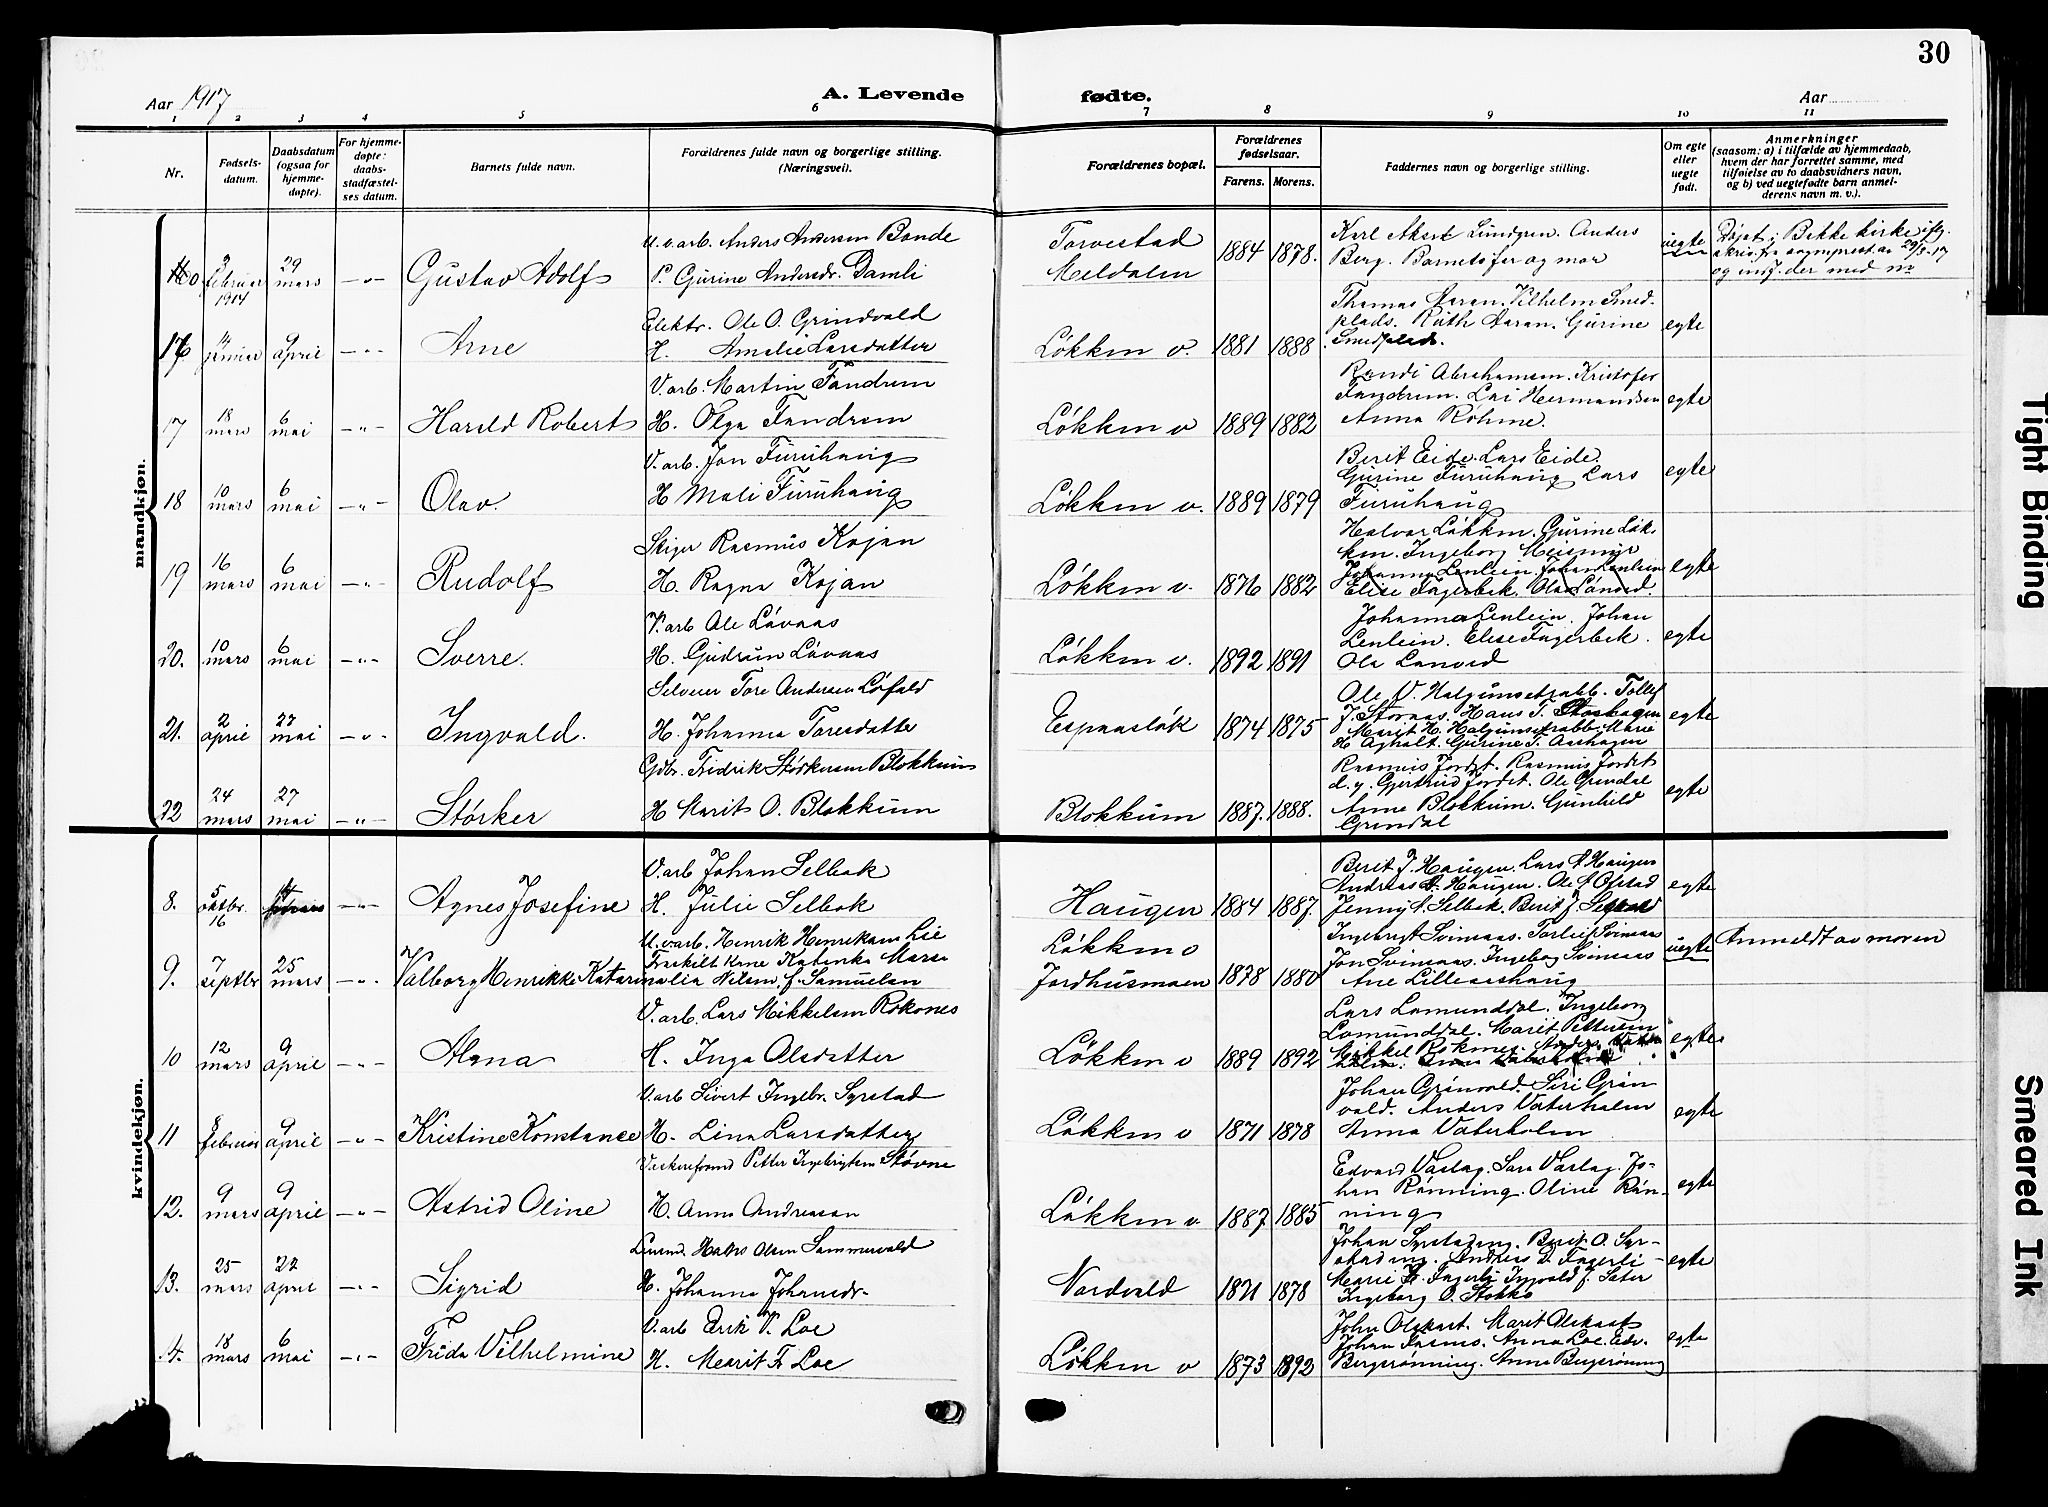 30
Aar 1917
A. Levende
fødte.
Aar
1 2 3 4 5 6 7 8 9 10 11
Nr.
Fødsels-
datum.
Daabsdatum
(ogsaa for
hjemme-
døpte).
For hjemme-
døpte:
daabs-
stadfæstel-
ses datum.
Barnets fulde navn.
Forældrenes fulde navn og borgerlige stilling.
(Næringsvei).
Forældrenes bopæl.
Forældrenes
fødselsaar.
Farens. Morens.
Faddernes navn og borgerlige stilling.
Om egte
eller
uegte
født.
Anmerkninger
(saasom: a) i tilfælde av hjemmedaab,
hvem der har forrettet samme, med
tilføielse av to daabsvidners navn,
og b) ved uegtefødte barn anmel-
derens navn m. v.).
mandkjøn.
februar 1914
29 mars
Gustav Adolf
U.v.arb. Anders Andersen Bonde
P. Gjurine Andersdr. Damli
Torvestad
Meldalen
1884 1878.
Karl Akset Lindgren. Anders
Berg. Barnets far og mor
uegte
Døpt i Bakke kirke iflg.
skriv. fra sogneprest av 29/3-17
og indf. der med nr
16
januar
9 april
Arne
Elektr. Ole O. Grindvold
H. Amalie Larsdatter
Løkken v.
1881 1888
Thomas Aaran. Vilhelm Smed-
plads. Ruth Aaran. Gurine
Smedplads.
egte
17
18 mars
6 mai
Harald Robert
V.arb. Martin Tandrem
H. Olga Tandrem
Løkken v
1889 1882
Randi Abrahamsen. Kristofer
Tandrem. Lai Hermandsen
Anna Røhme.
egte
18
10 mars
6 mai
Olav.
V.arb. Jon Furuhaug
H Mali Furuhaug
Løkken v.
1889 1879
Berit Eide. Lars Eide.
Gurine Furuhaug Lars
Furuhaug
egte
19
16 mars
6 mai
Rudolf
Stiger Rasmus Kojan
H. Ragna Kojan
Løkken v.
1876 1882
Halvar Løkken. Gjurine Løk-
ken. Ingeborg Meismyr
Johanna Lenlein. Johan Lenlein
Elise Fagerbek. Ola Lånsed.
egte
20.
10 mars
6 mai
Sverre.
V.arb Ole Løvaas
H. Gudrun Løvaas
Løkken v.
1892 1891
Johanna Lenlein. Johan
Lenlein. Elise Fagerbek.
Ola Lansed
egte
21.
2 april
27 mai
Ingvald.
Selveier Tore Andersen Løfald
H. Johanna Toresdatter
Espaasløk
1874 1875
Ole V. Halgunsetrabb. Tollef
J. Storaas. Hans T.
Marit H. Halgunsetrabb. Marie
H Aghalt. Gjurine T. Aashagen
egte
22
24 mars
27 mai
Størker
Gdbr. Fredrik Størkersen Blokkum
H Marit O. Blokkum
Blokkum
1887. 1888.
Rasmus Jordet. Rasmus Jordet
d.y. Gjertrud Jordet. Ole Grindal
Anne Blokkum. Gunhild
Grindal
egte
kvindekjøn.
8.
5 oktbr. 16
Agnes Josefine
V.arb Johan Selbak
H. Julie Selbak
Haugen
1884 1887.
Berit J. Haugen. Lars A Haugen
Andreas A. Haugen. Ole A Ofstad
Jenny A. Selbak. Berit J.
egte
9.
7 septbr
25 mars
Valborg Henrikke Katarina
U.v.arb. Henrik Henriksen Lie
Fraskilt kone Katinka Maria
lia Nilsen f. Samuelsen
Løkken v
Jordhusmoen
1878 1880
Ingebrigt Svinsaas. Torleif Svinsaas
Jon Svinsaas. Ingeborg Svinsaas
Ane Lilleaashaug
uegte
Anmeldt av moren
10
12 mars
9 april
V.arb. Lars Mikkelsen Roknes
H. Inga Olsdatter
Løkken v
1889 1892
Lars Lomunddal. Ingeborg
Lomunddal. Marit
Mikkel
egte
11
8 februar
9 april
Kristine Konstance
V.arb Sivert Ingebr. Syrstad
H. Lina Larsdatter
Løkken v
1871 1878
Johan Grønvold. Siri Grøn
vold. Anders Vaterholm
Anna Vaterholm
egte
12.
9 mars
9 april
Astrid Oline
Petter Ingebrigtsen Støvne
H. Anna Andreasen
Løkken v
1887 1885
Edvard Vaslag. Sara Vaslag. Jo-
han Rønning. Oline Røn-
ning
egte
13.
25 mars
22 april
Sigrid
Olsen Sommervold
H. Johanna Johansdr.
Nordvold
1871 1878
Johan Syrstadeng. Berit O. Syr-
stadeng. Andreas D. Fagerli
Marie Fagerli Ingvald J. Sæter
Ingeborg O. Stokke
egte
14.
18 mars
6 mai
Frida Vilhelmine
V.arb Erik P. Loe
H. Marit F Loe
Løkken v
1873 1892
John Olskast. Marit Olskast
Johan Anna Loe. Edv.
Bergsrønning. Anna Bergsrønning
egte
Tight Binding
Smeared Ink